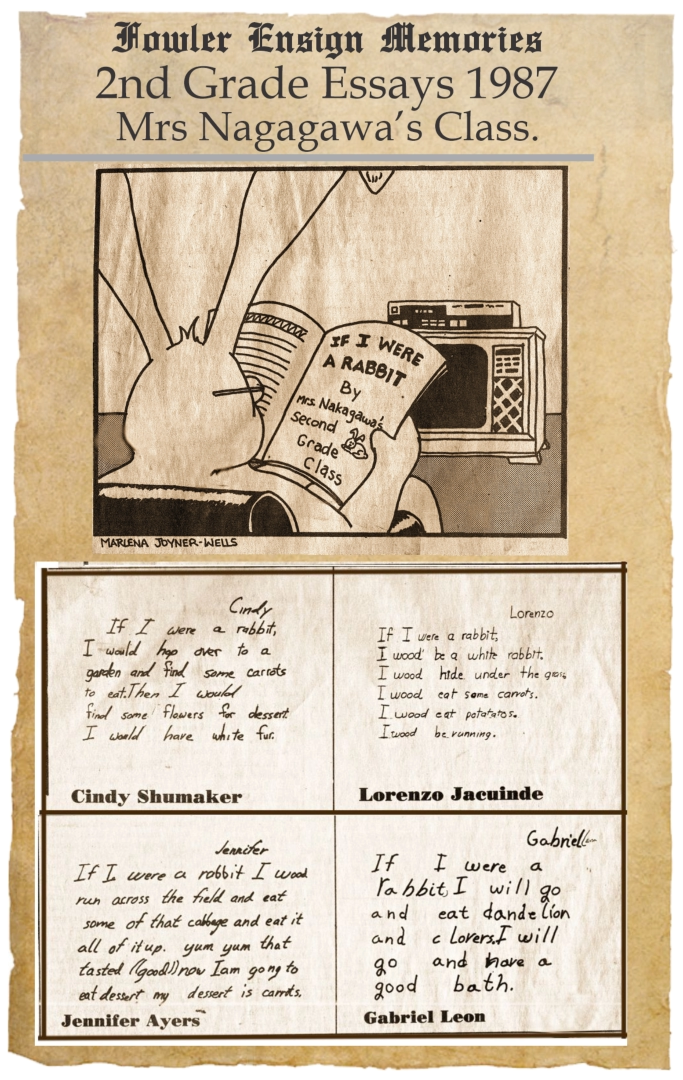 Fowler Ensign Memories
2nd Grade Essays 1987
Mrs Nagagawa's Class.
IF I WERE
A RABBIT
By
Mrs. Nakagawa's
Second
Grade
Class
MARLENA JOYNER-WELLS
Cindy
If I were a rabbit,
I would hop over to a
garden and find some carrots
to eat.Then I would
find some flowers for dessert
I would have white fur.
Cindy Shumaker
Lorenzo
If I were a rabbit,
I wood be a white rabbit.
I wood hide under the grass
I wood eat some carrots.
I wood eat potatatos.
I wood be running.
Lorenzo Jacuinde
Jennifer
If I were a rabbit I wood
run across the field and eat
some of that cabbage and eat it
all of it up. yum yum that
tasted ((good)) now I am going to
eat dessert my dessert is carrots.
Jennifer Ayers
Gabriel
If I were a
rabbit, I will go
and eat dandelion
and clovers.I will
go and have a
good bath.
Gabriel Leon